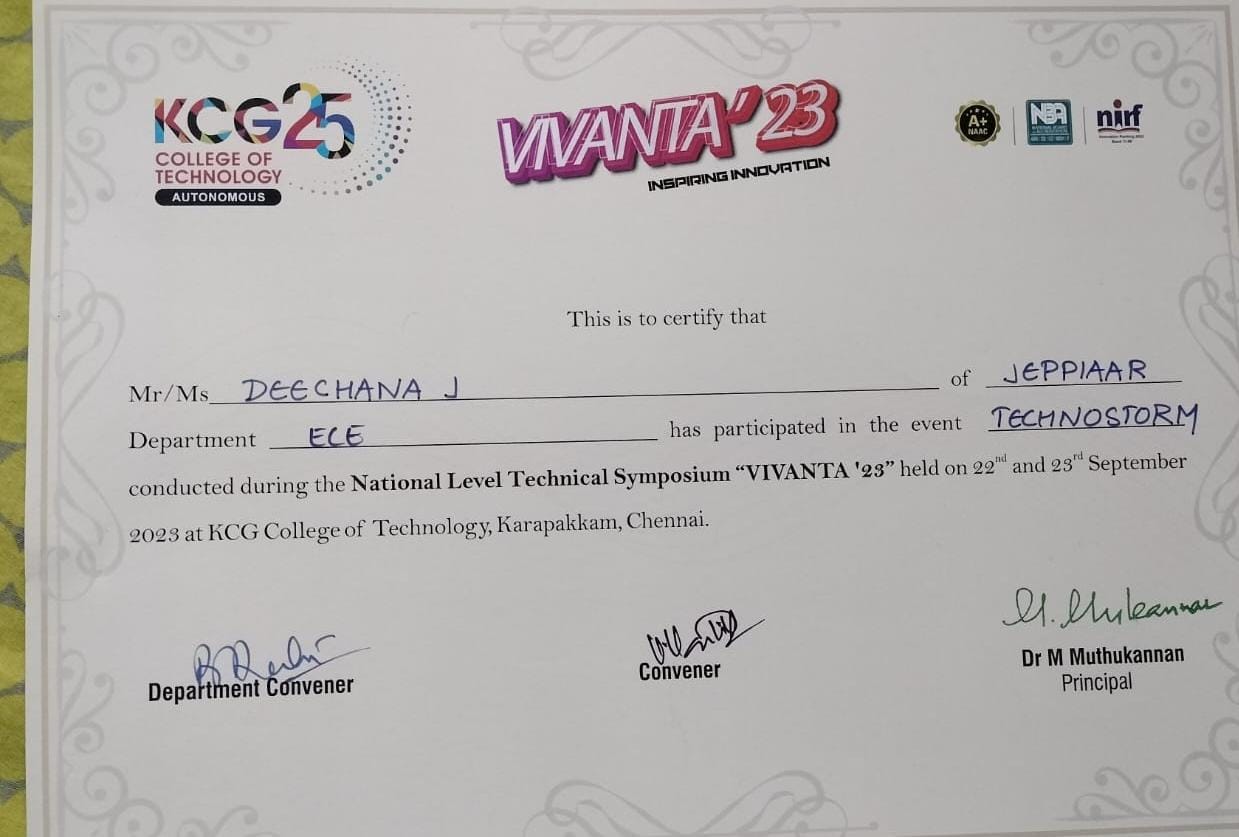 KCG25
COLLEGE OF
TECHNOLOGY
AUTONOMOUS
VIVANTA'23
INSPIRING INNOVATION
A+
NAAC
NBA
nirf
This is to certify that
Mr/Ms DEECHANA J of JEPPIAAR
Department ECE has participated in the event TECHNOSTORM
conducted during the National Level Technical Symposium “VIVANTA '23” held on 22nd and 23rd September
2023 at KCG College of Technology, Karapakkam, Chennai.
Department Convener
Convener
Dr M Muthukannan
Principal